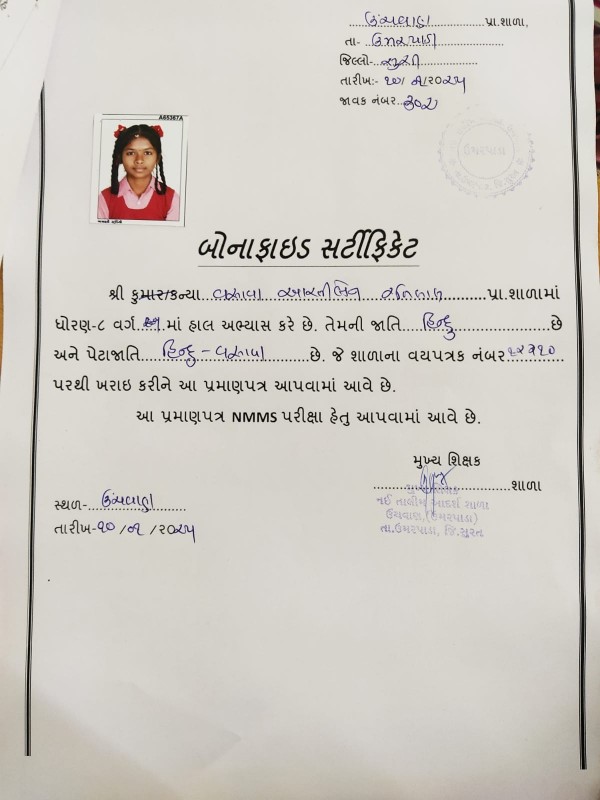 ઉંચવાણ પ્રા.શાળા,
તા- ઉમરપાડા
જિલ્લો- સુરત
તારીખ:- ૧૦/ ૧/૨૦૨૫
જાવક નંબર. ૩૦૨
ઉમરપાડા
A65367A
બોનાફાઇડ સર્ટીફિકેટ
શ્રી કુમાર/કન્યા વસાવા આરતીબેન પ્રા.શાળામાં
ધોરણ-૮ વર્ગ માં હાલ અભ્યાસ કરે છે. તેમની જાતિ હિન્દુ છે
અને પેટાજાતિ હિન્દુ - વસાવા છે. જે શાળાના વયપત્રક નંબર
પરથી ખરાઇ કરીને આ પ્રમાણપત્ર આપવામાં આવે છે.
આ પ્રમાણપત્ર NMMS પરીક્ષા હેતુ આપવામાં આવે છે.
મુખ્ય શિક્ષક
શાળા
મુખ્ય શિક્ષક
નઈ તાલીમ આદર્શ શાળા
ઉંચવાણ,(ઉમરપાડા)
તા.ઉમરપાડા, જિ.સુરત
સ્થળ- ઉંચવાણ
તારીખ-૧૦ /૧ /૨૦૨૫